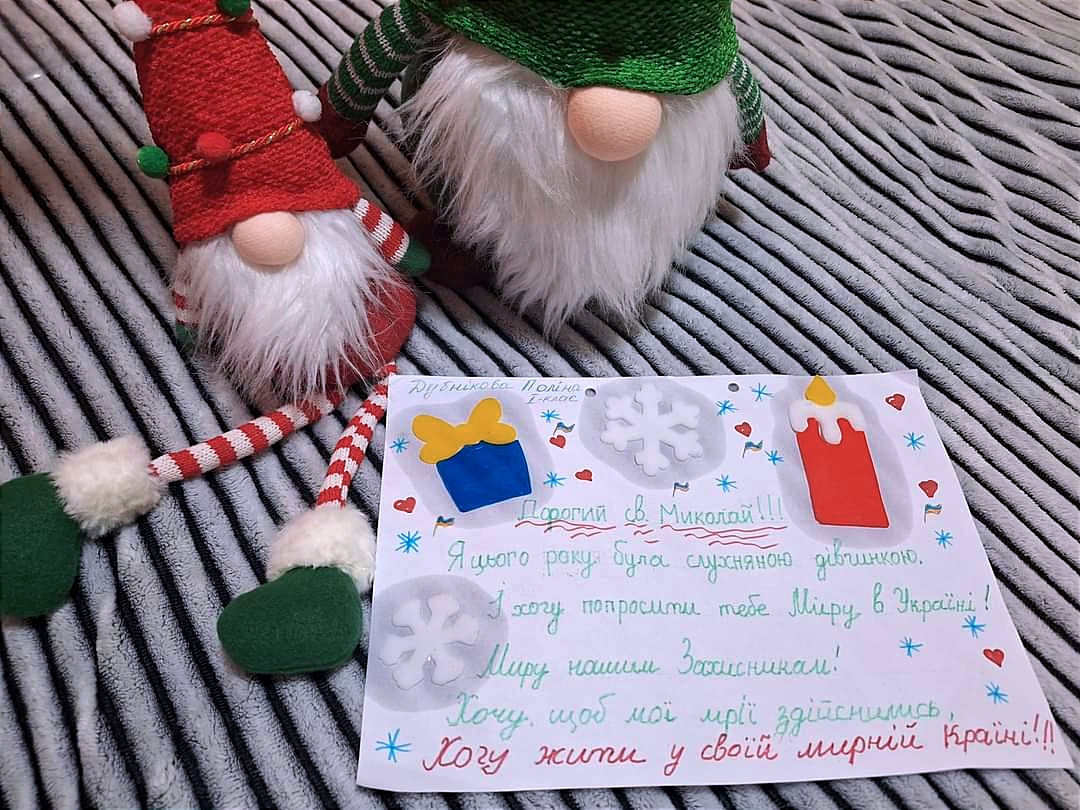 Дубнікова Поліна
І-клас
Дорогий св. Миколай!!!
Я цього року була слухняною дівчинкою.
І хочу попросити тебе Миру в Україні!
Миру нашим Захисникам!
Хочу, щоб мої мрії здійснились,
Хочу жити у своїй мирній Країні!!!